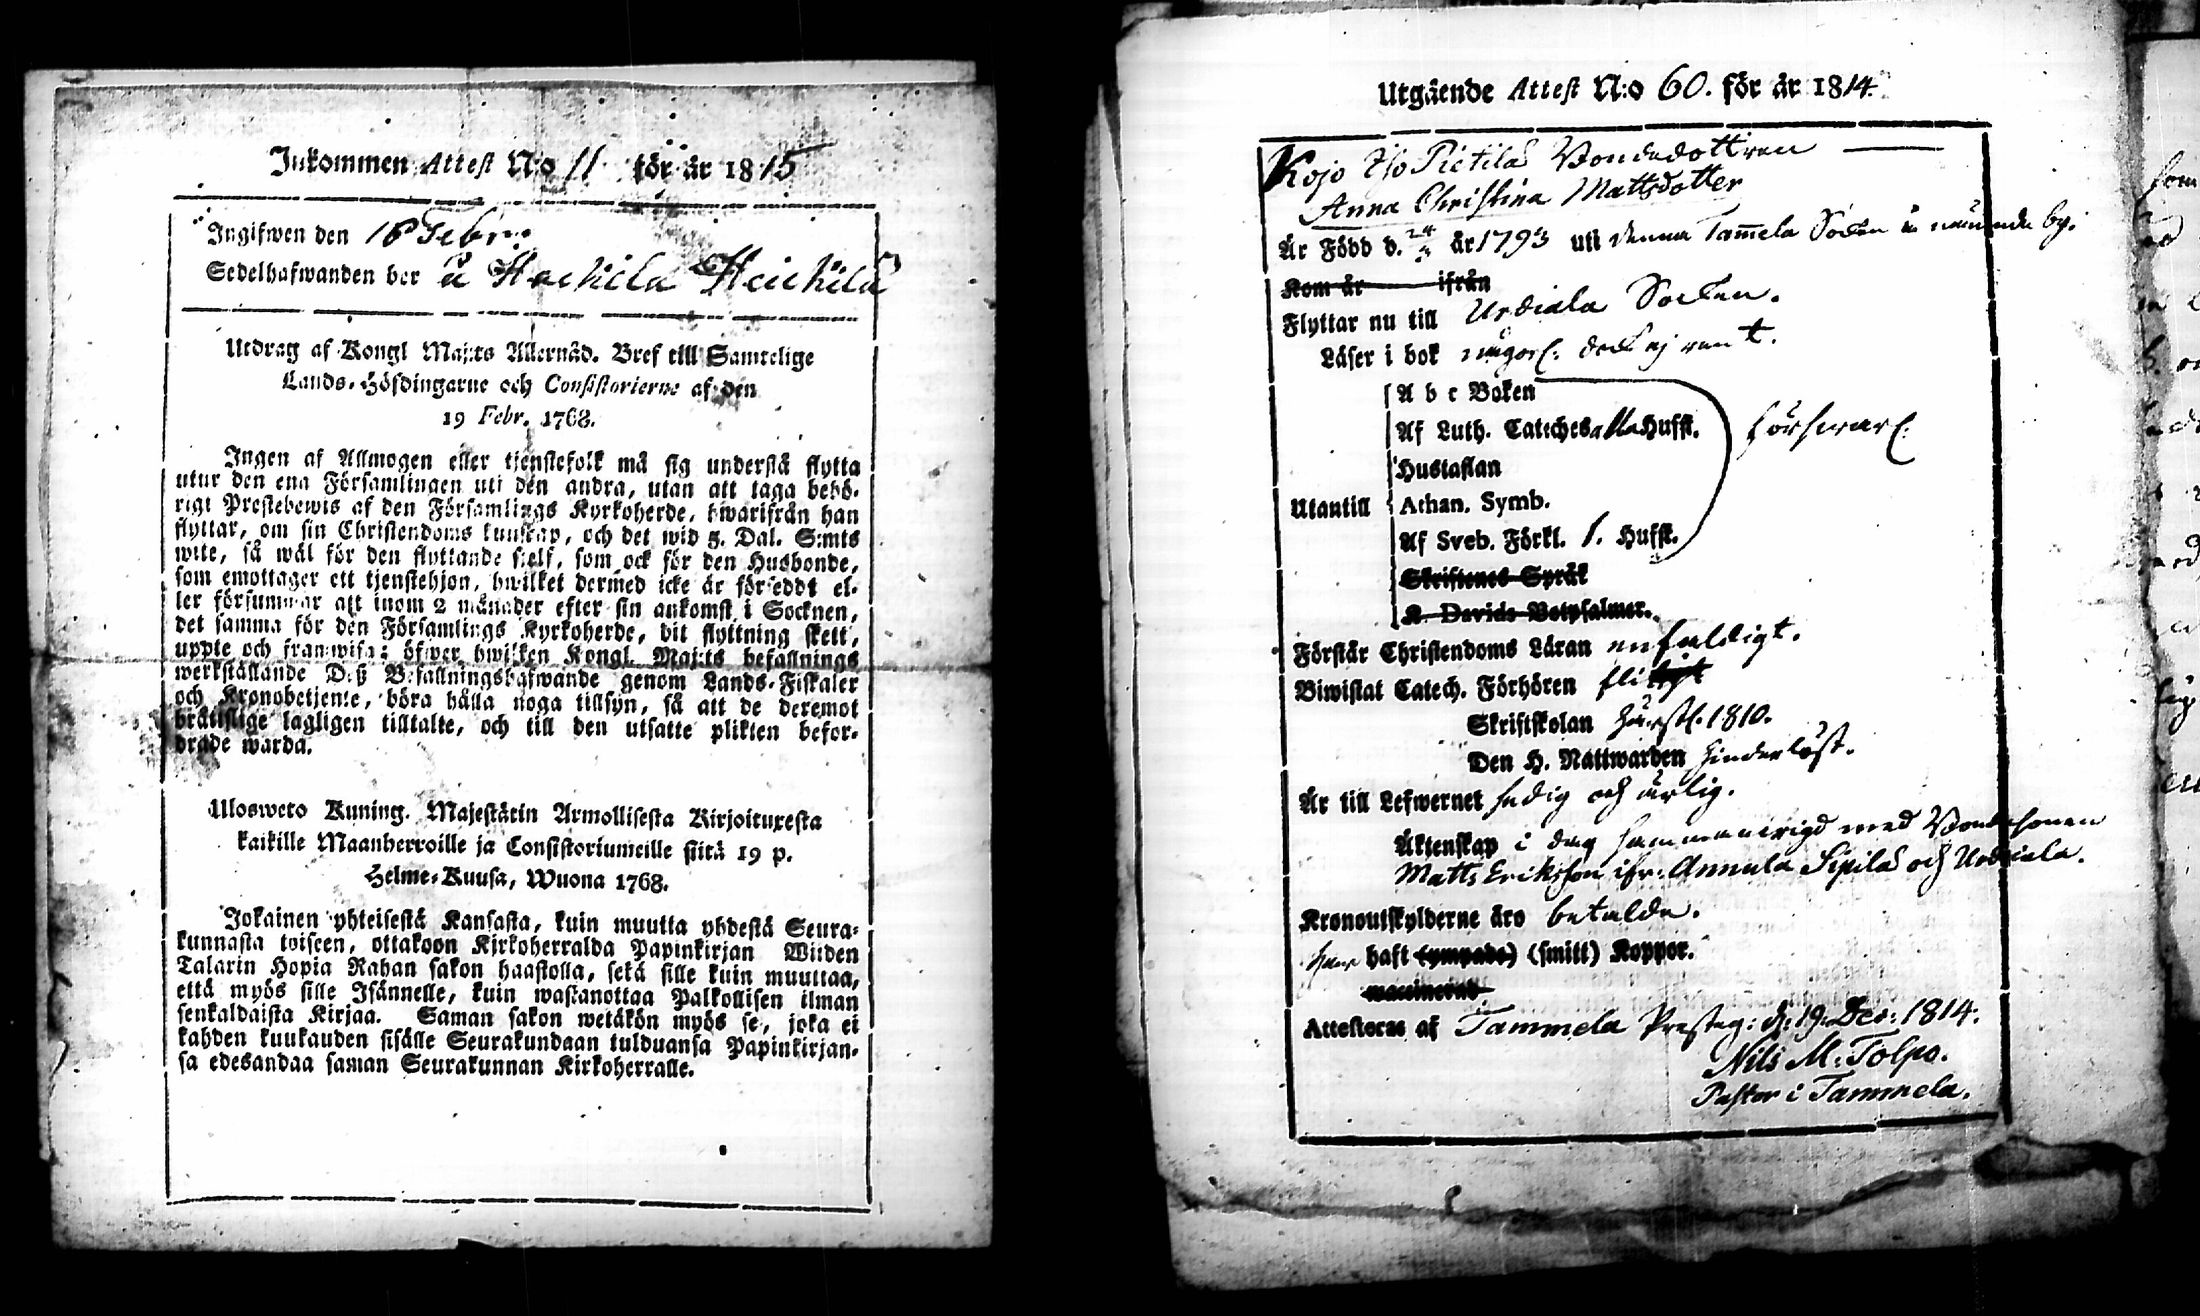 Inkommen Attest N:o 11 för år 1815
Ingifwen den 18 Febr.
Sedelhafwanden bor å Hackila Heickilä
Utdrag af Kongl Maj:ts Allernåd. Bref till Samtelige
Lands-Höfdingarne och Consistorierne af den
19 Febr. 1768.
Ingen af Allmogen eller tjenstefolk må sig understå flytta
utur den ena Församlingen uti den andra, utan att taga behö-
rigt Prestebewis af den Församlings Kyrkoherde, hwarifrån han
flyttar, om sin Christendoms kunskap, och det wid 5. Dal. S:mts
wite, så wäl för den flyttande sielf, som ock för den Husbonde,
som emottager ett tjenstehjon, hwilket dermed icke är förseddt el-
ler försummar att inom 2 månader efter sin ankomst i Socknen,
det samma för den Församlings Kyrkoherde, dit flyttning skett,
uppte och framwisa: öfwer hwilken Kongl. Maj:ts befallnings
werkställande Deß Befallningshafwande genom Lands-Fiskaler
och Kronobetjente, böra hålla noga tillsyn, så att de deremot
brätislige lagligen tilltalte, och till den utsatte plikten befor-
drade warda.
Ulosweto Kuning. Majestätin Armollisesta Kirjoituxesta
kaikille Maanherroille ja Consistoriumeille siitä 19 p.
Helme-Kuusa, Wuona 1768.
Jokainen yhteisestä Kansasta, kuin muutta yhdestä Seura-
kunnasta toiseen, ottakoon Kirkoherralda Papinkirjan Wiiden
Talarin Hopia Rahan sakon haastolla, sekä sille kuin muuttaa,
että myös sille Isännelle, kuin wastanottaa Palkollisen ilman
senkaldaista Kirjaa. Saman sakon wetäkön myös se, joka ei
kahden kuukauden sisälle Seurakundaan tulduansa Papinkirjan-
sa edesandaa saman Seurakunnan Kirkoherralle.
Utgående Attest N:o 60. för år 1814.
Kojo Pietilä Bondedottren
Anna Christina Mattsdotter
Är Född d. år 1793 uti denna Tammela Socken å nämnde by.
Kom år ifrån
Flyttar nu till Urdiala Socken.
Läser i bok någorl. dock ej rent.
A b c Boken
Af Luth. Cateches alla Hufst.
försvarl.
Hustaflan
Utantill
Athan. Symb.
Af Sveb. Förkl. 1. Hufst.
Skriftenes Språk
K. Davids Botpsalmer.
Förstår Christendoms Läran enfaldigt.
Biwistat Catech. Förhören flitigt
Skriftskolan 1810.
Den H. Nattwarden hinderlöst.
Är till Lefwernet sedig och ärlig.
Äktenskap i dag sammanvigd med Bondesonen
Matts Eriksson ifr: Annula Sipilä och Urdiala.
Kronoutskylderne äro betalde.
haft (ympade) (smitt) Koppor.
waccinerad
Attesteras af Tammela Presteg: d: 19. Dec: 1814.
Nils M: Tolpo.
Pastor i Tammela.